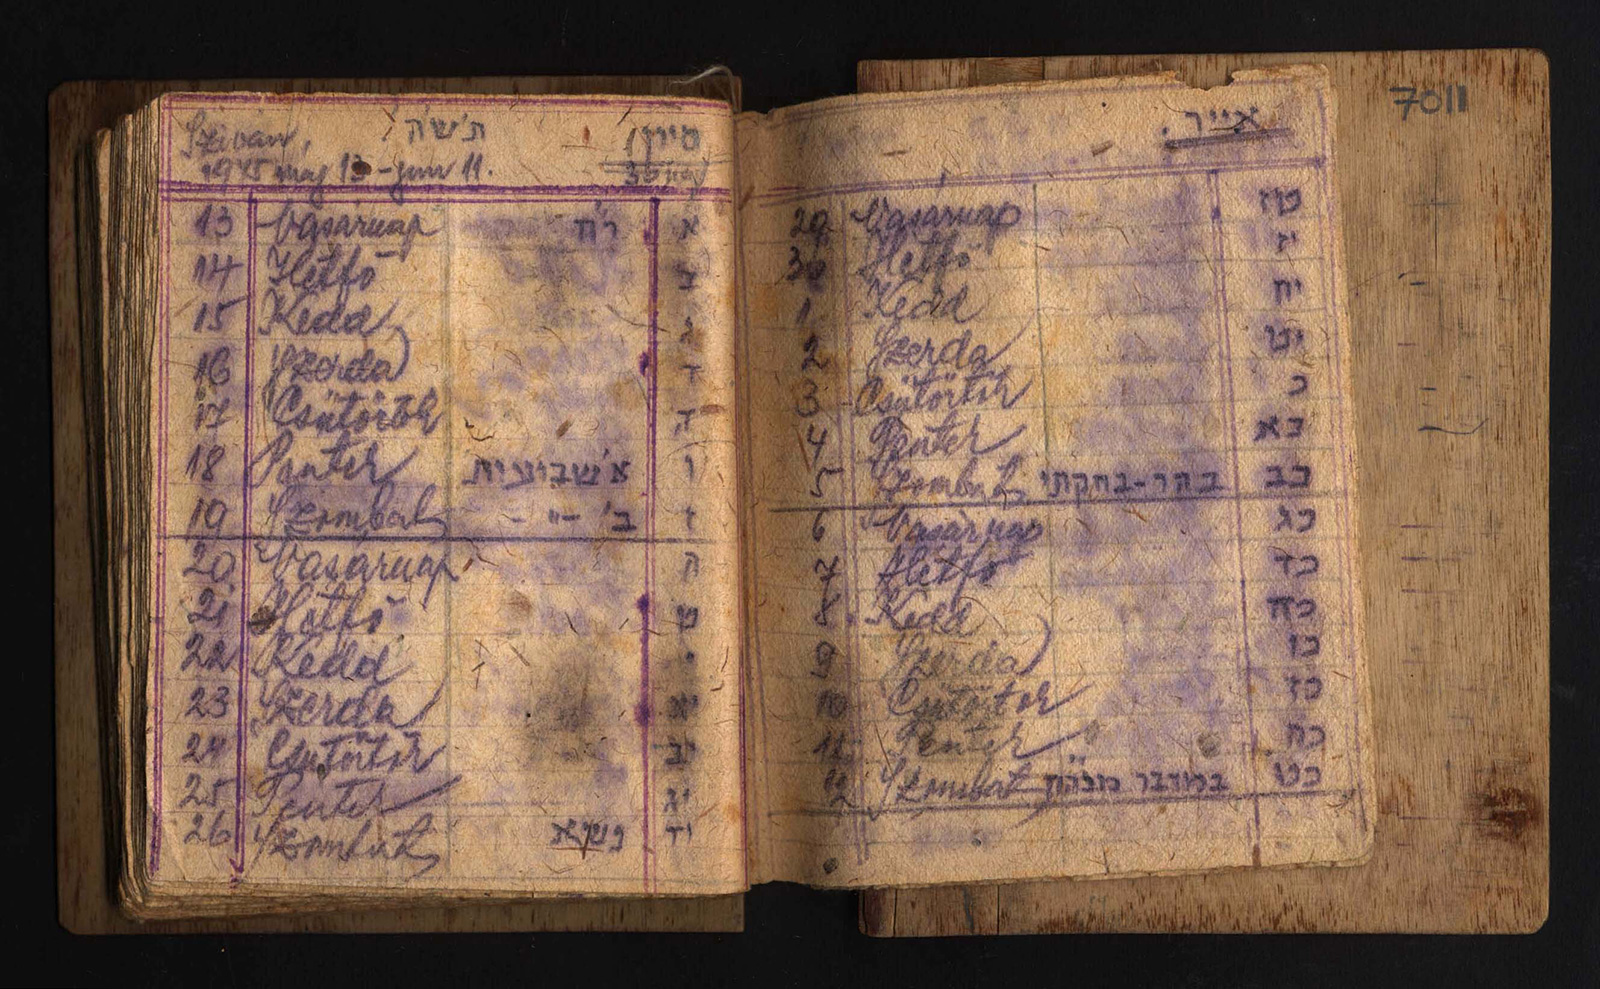 אייר.
29 Vasárnap טז
30 Hétfő יז
1 Kedd יח
2 Szerda יט
3 Csütörtök כ
4 Péntek כא
5 Szombat בהר-בחקתי כב
6 Vasárnap כג
7 Hétfő כד
8 Kedd כה
9 Szerda כו
10 Csütörtök כז
11 Péntek כח
12 Szombat במדבר כט
Szivan, תש״ה סיון
1945 máj 13 - jun 11.
13 Vasárnap ר״ח א
14 Hétfő ב
15 Kedd ג
16 Szerda ד
17 Csütörtök ה
18 Péntek א׳ שבועות ו
19 Szombat ב׳ -"- ז
20 Vasárnap ח
21 Hétfő ט
22 Kedd י
23 Szerda יא
24 Csütörtök יב
25 Péntek יג
26 Szombat נשא יד
7011